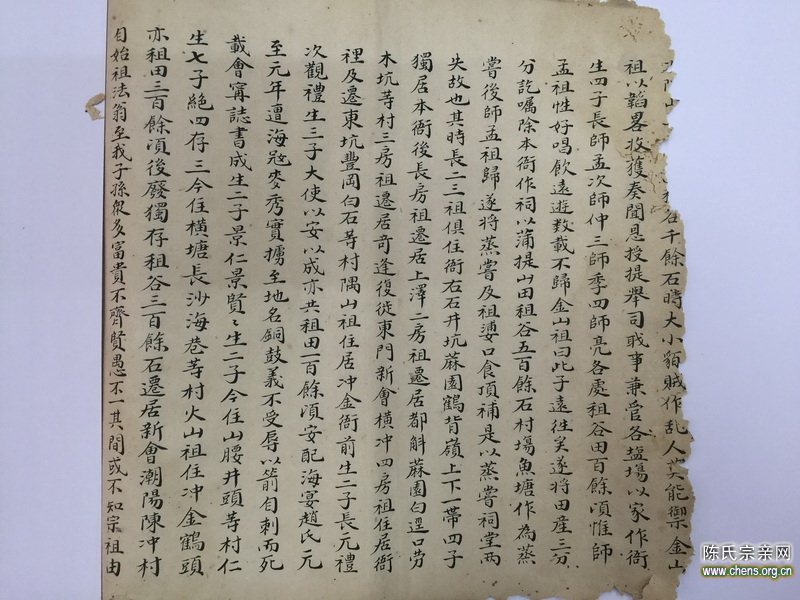 租谷千餘石時大小貊賊作乱人莫能禦金山
祖以韜畧收獲奏聞恩授提舉司戢事兼管各塩場以家作衙
生四子長師孟次師仲三師季四師亮各處租谷田百餘項惟師
孟祖性好唱飲遠遊数載不歸金山祖曰此子遠徃矣遂將田產三分
分訖嘱除本衙作祠以蒲提山田租谷五百餘石村塲魚塘作為蒸
嘗後師孟祖歸遂將蒸嘗及祖婆口食項補是以蒸嘗祠堂两
失故也其時長二三祖俱住衙右石井坑蔴園鶴背嶺上下一帶四子
獨居本衙後長房祖遷居上澤二房祖遷居都斛蔴園白逕口劳
木坑䓁村三房祖遷居奇逢復徙東門新會橫冲四房祖住居衙
裡及遷東坑豐岡白石䓁村隅山祖住居冲金衙前生二子長元禮
次觀禮生三子大使以安以成亦共租田一百餘項安配海宴趙氏元
至元年遭海冦麥秀實擄至地名銅鼓義不受辱以箭自刺而死
載會甯誌書成生二子景仁景賢〻生二子今住山腰井頭䓁村仁
生七子絕四存三今住橫塘長沙海巷䓁村火山祖住冲金鶴頭
亦租田三百餘項後廢獨存租谷三百餘石遷居新會潮陽陳冲村
自始祖法翁至我子孫衆多富貴不齊賢愚不一其間或不知宗祖由
陈氏宗亲网
www.chens.org.cn